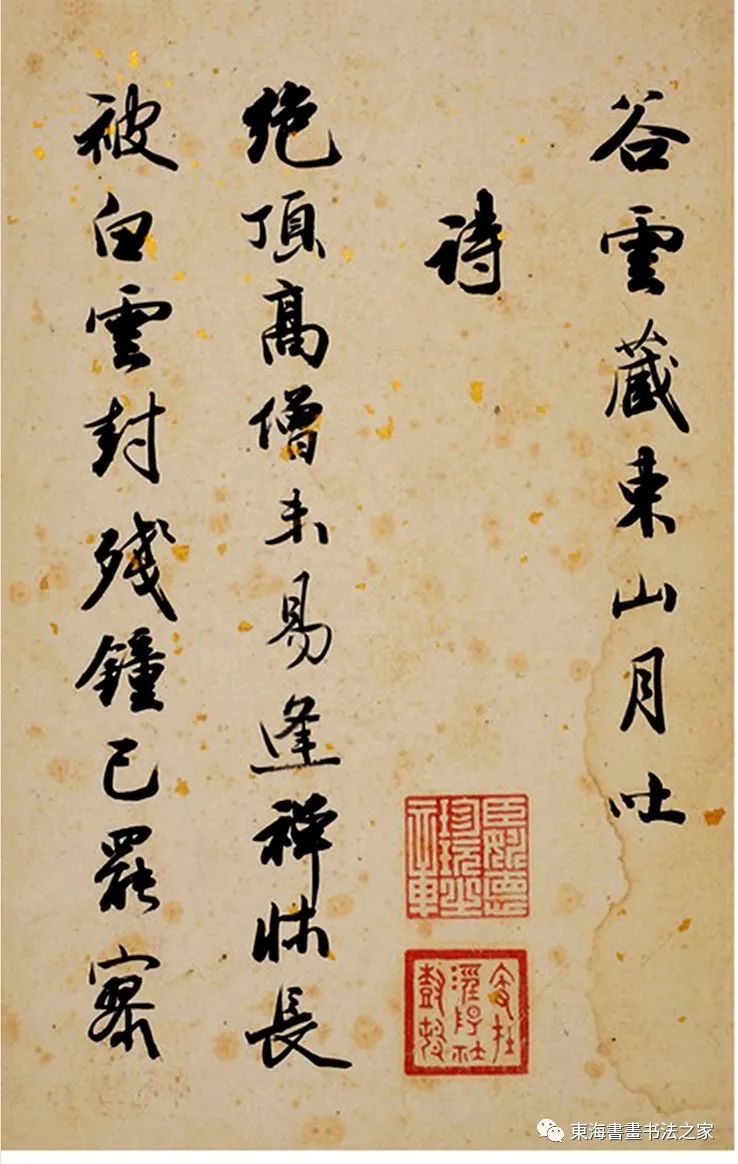 谷雲藏東山月吐
詩
絶頂高僧未易逢禪牀長
被白雲封殘鐘已罷寥
東海書畫书法之家